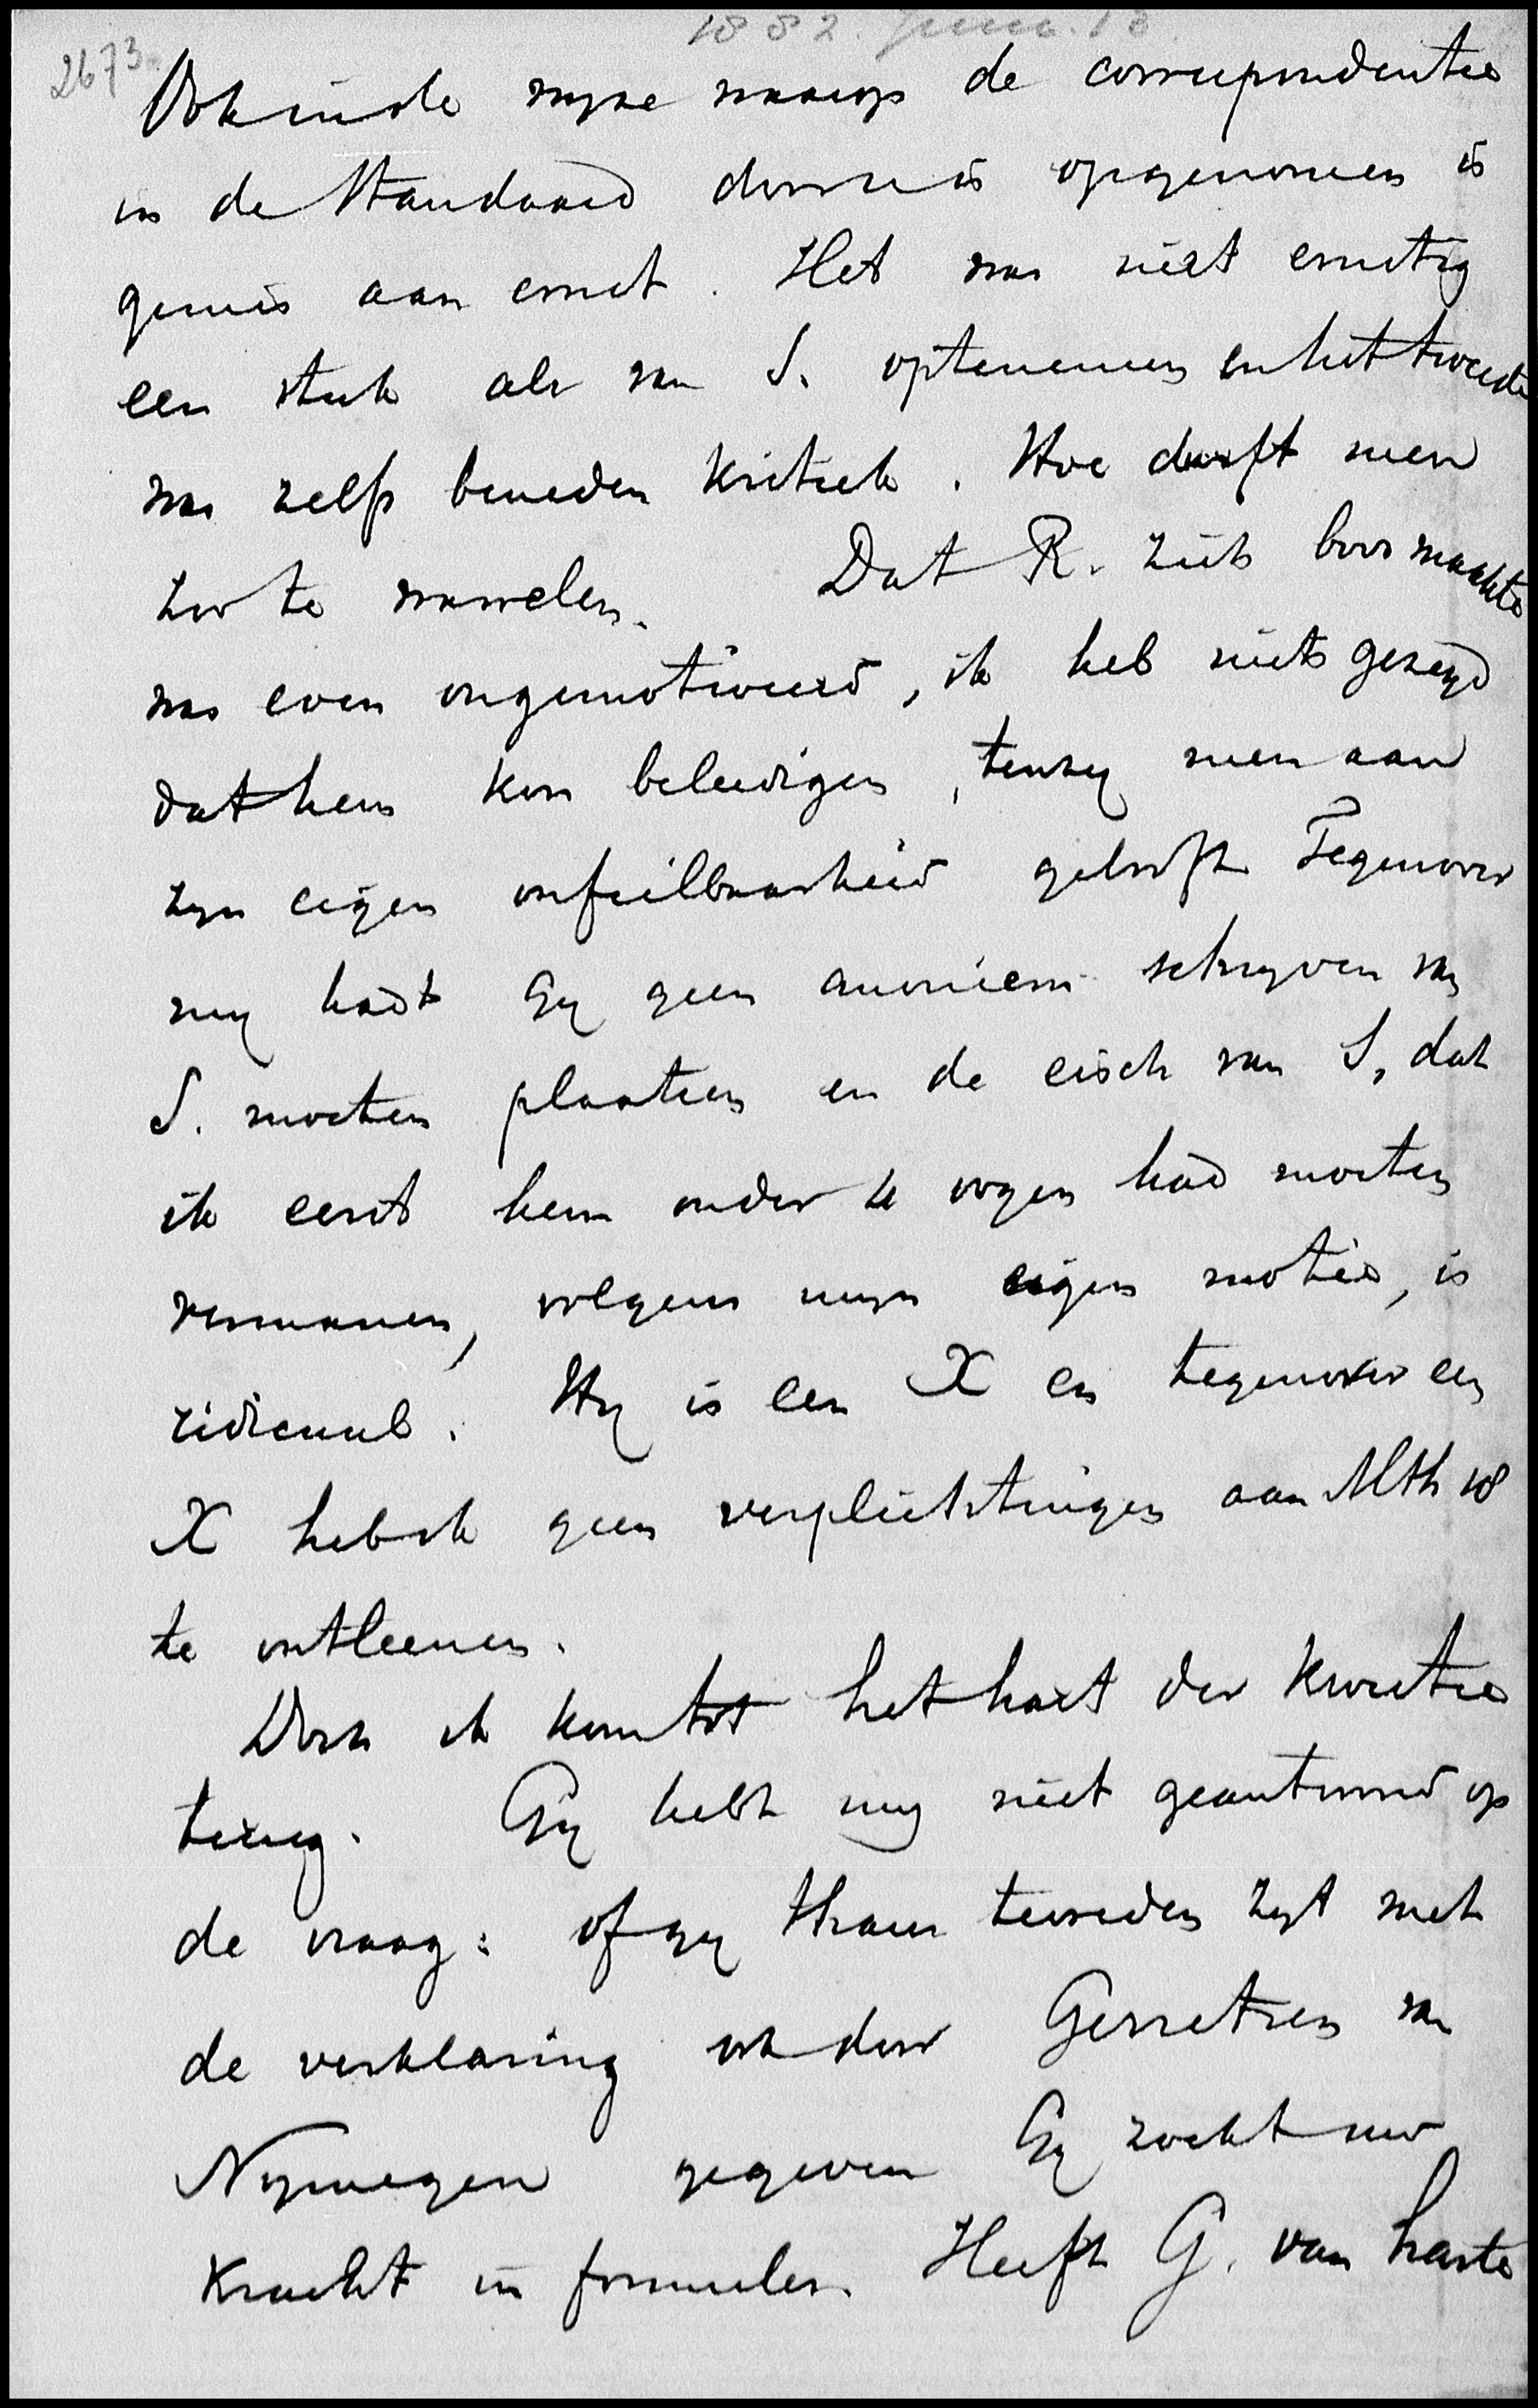 1882. Juni. 13.
2673.
Ook in de wyze waarop de correspondentie
in de Standaard door u is opgenomen is
gemis aan ernst. Het was niet ernstig
een stuk als van S. optenemen en het tweede
was zelfs beneden kritiek. Hoe durft men
zoo te wawelen. Dat R. zich boos maakte
was even ongemotiveerd, ik heb niets gezegd
dat hem kon beleedigen, tenzy men aan
zyn eigen onfeilbaarheid gelooft. Tegenover
my hadt Gy geen anoniem schryven van
S. moeten plaatsen en de eisch van S, dat
ik eerst hem onder 4 oogen had moeten
vermanen, volgens myn eigen motie, is
ridicuul. Hy is een X en tegenover een
X heb ik geen verplichtingen aan Mth 18
te ontleenen.
Doch ik kom tot het hart der kwestie
terug. Gy hebt my niet geantwoord op
de vraag: of gy thans tevreden zyt met
de verklaring ook door Gerretsen van
Nymegen gegeven Gy zoekt uw
kracht in formulen. Heeft G. van harte